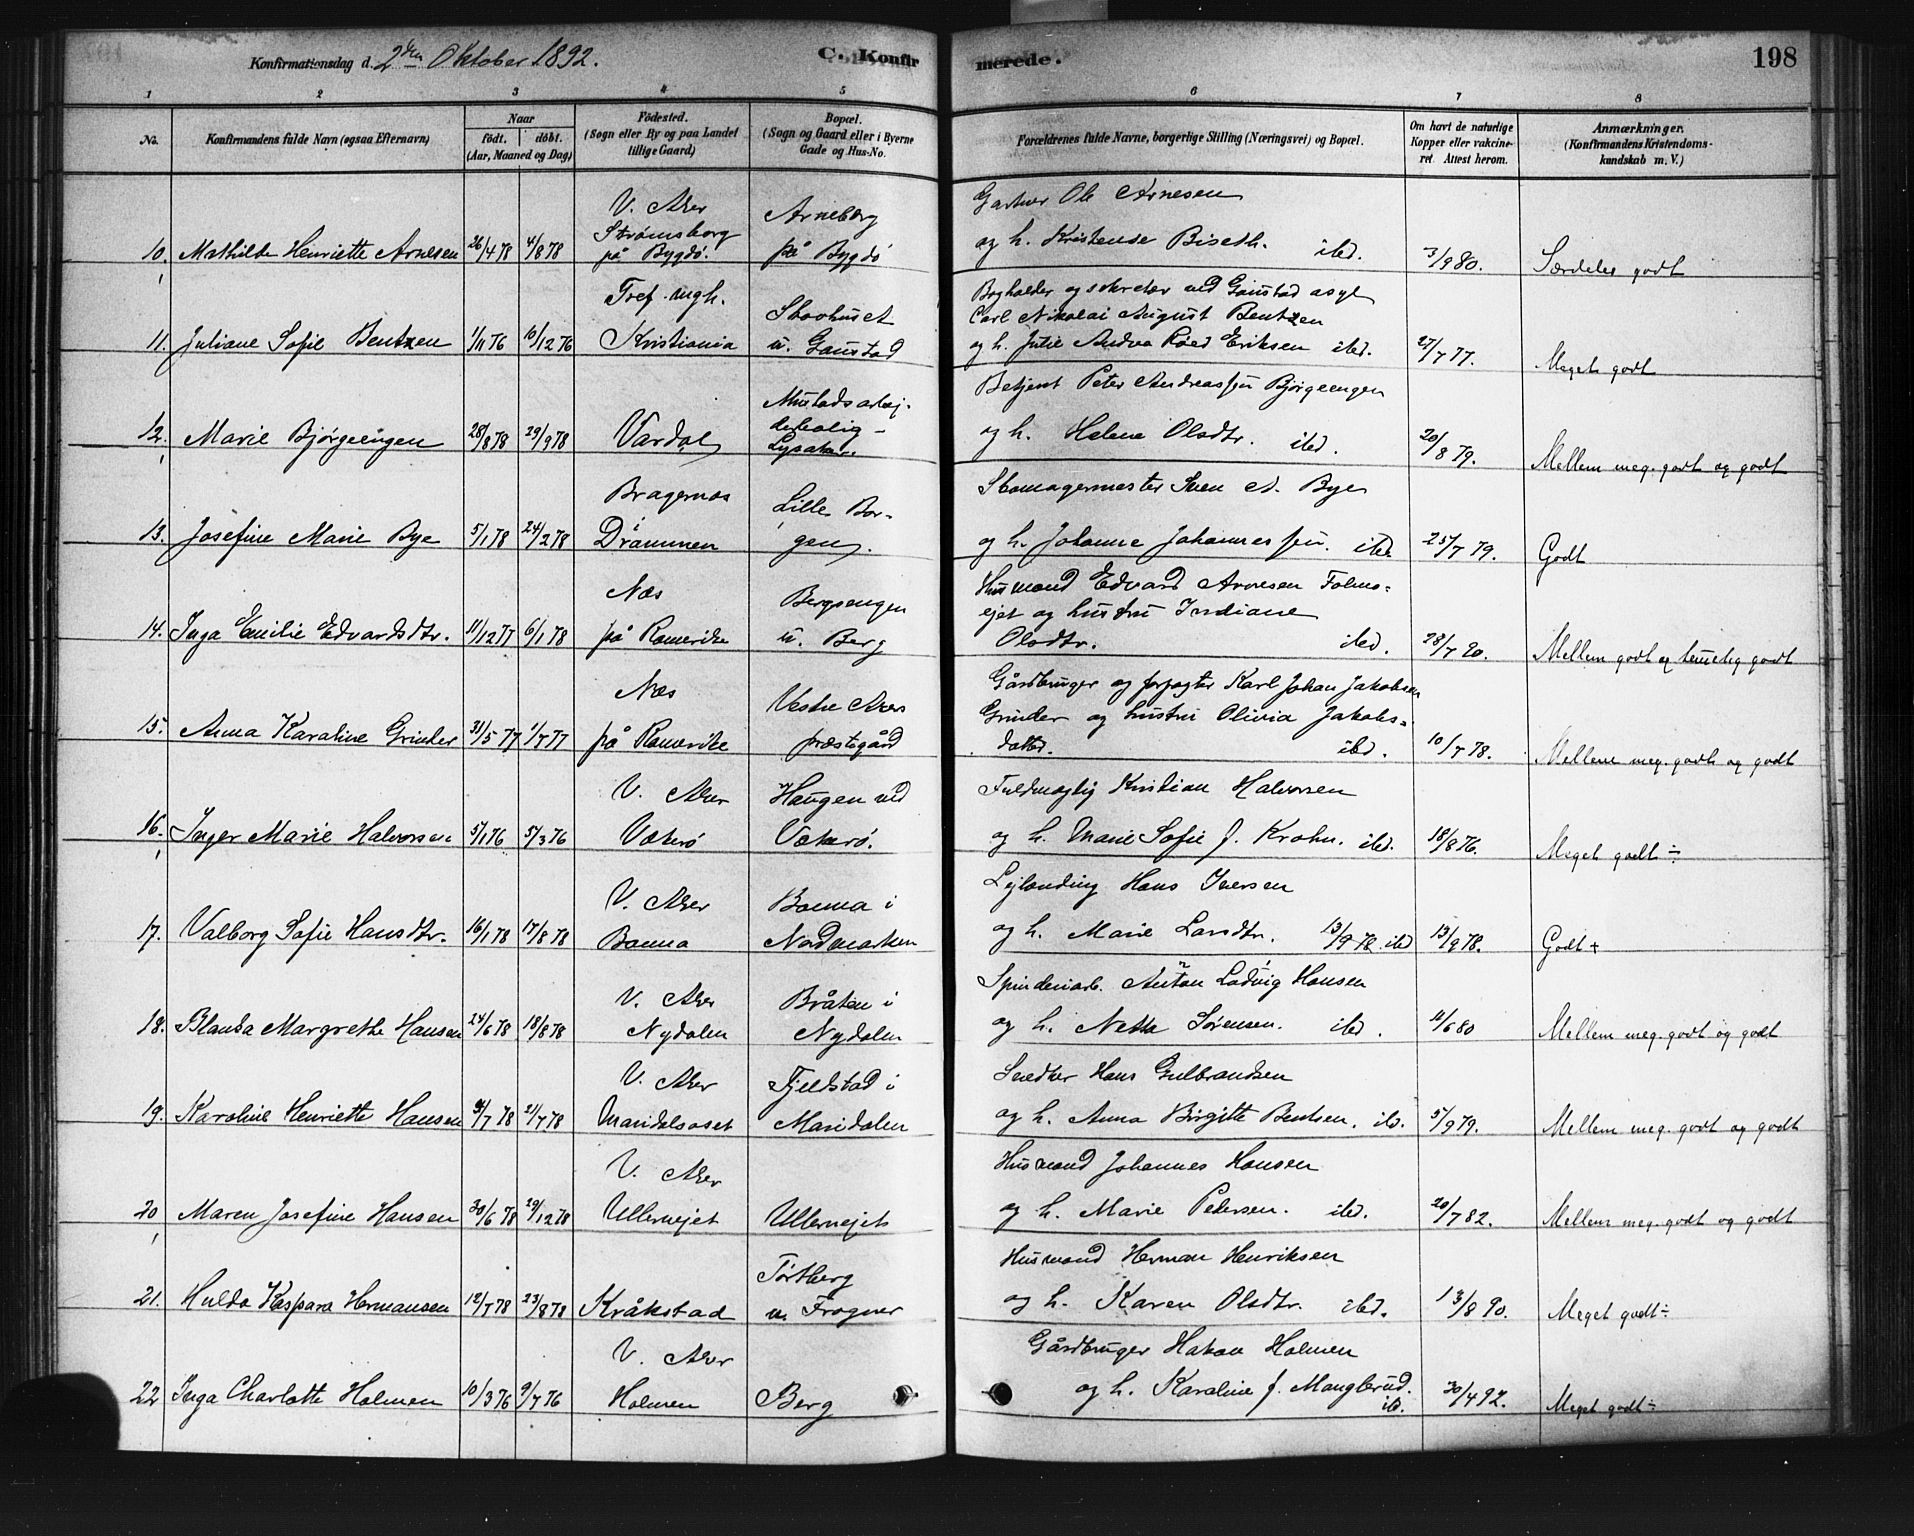 Konfirmationsdag d. 2den Oktober 1892.
C. Konfirmerede.
198
1 2 3 4 5 6 7 8
No.
Konfirmandens fulde Navn (ogsaa Efternavn)
Naar
født. døbt.
(Aar, Maaned og Dag)
Fødested.
(Sogn eller By og paa Landet
tillige Gaard)
Bopæl.
(Sogn og Gaard eller i Byerne
Gade og Hus-No.
Forældrenes fulde Navne, borgerlige Stilling (Næringsvei) og Bopæl.
Om havt de naturlige
Kopper eller vakcine-
ret. Attest herom.
Anmærkninger.
(Konfirmandens Kristendoms-
kundskab m. V.)
V. Aker Arneberg Gartner Ole Arnesen
Strømsborg
10. Mathilde Henriette Arnesen 26/4 78 4/8 78 på Bygdø. på Bygdø og h. Kristense Biseth. ibd. 3/9 80. Særdeles godt
Tref. mgh. Stoohuset Bogholder og sekretær ved Gaustad asyl
Carl Nikolai August Bentzen
11. Juliane Sofie Bentzen 1/11 76 10/12 76 Kristiania u. Gaustad og h. Julie Andrea Roed Eriksen ibd. 27/7 77. Meget godt
Mustads arbej- Betjent Peter Andreassen Bjørgeengen
derbolig -
12. Marie Bjørgeengen 28/8 78 29/9 78 Vardal Lysaker. og h. Helene Olsdtr. ibd. 20/8 79. Mellem meg. godt og godt
Bragernæs Lille Bor- Skomagermester Sven A. Bye
13. Josefine Marie Bye 5/1 78 24/2 78 Drammen gen. og h. Johanne Johannessen. ibd. 25/7 79. Godt
Næs Bergsengen Husmand Edvard Arnesen Folms-
ejet og hustru Indiane
14. Inga Emilie Edvardsdtr. 11/12 77 6/1 78 på Romerike u. Berg Olsdtr. ibd. 28/7 90. Mellem godt og temelig godt
Næs Vestre Aker Gårdbruger og forpagter Karl Johan Jakobsen
Grinder og hustru Olivia Jakobs-
15. Anna Karoline Grinder 31/5 77 1/7 77 på Romerike præstegård datter. ibd. 10/7 78. Mellem meg. godt og godt
V. Aker Haugen ved Fuldmægtig Kristian Halvorsen
16. Inger Marie Halvorsen 5/1 76 5/3 76 Vækerø Vækerø. og h. Marie Sofie f. Krohn. ibd. 18/8 76. Meget godt ÷
V. Aker Bonna i Lejlending Hans Iversen
17. Valborg Sofie Hansdtr. 16/1 78 17/8 78 Bonna Nordmarken og h. Marie Larsdtr. 13/9 78 ibd 13/9 78. Godt +
V. Aker Bråten i Spinderiarb. Anton Ludvig Hansen
18. Blanda Margrethe Hansen 24/6 78 18/8 78 Nydalen Nydalen og h. Netta Sørensen. ibd. 11/6 80 Mellem meg. godt og godt
V. Aker Fjeldstad i Snedker Hans Gulbrandsen
19. Karoline Henriette Hansen /7 78 21/7 78 Maridalsoset Maridalen og h. Anna Birgitte Bentsen. ibd. 5/9 79. Mellem meg. godt og godt
V. Aker Husmand Johannes Hansen
20 Maren Josefine Hansen 30/6 78 29/12 78 Ullernejet Ullernejet og h. Marie Pedersen. ibd. 20/7 82. Mellem meg. godt og godt
Tørtberg Husmand Herman Henriksen
21. Hulda Kaspara Hermansen 12/7 78 23/8 78 Kråkstad u. Frogner og h. Karen Olsdtr. ibd. 13/8 90. Meget godt ÷
V. Aker Gårdbruger Hakon Holmen
22 Inga Charlotte Holmen 10/3 76 9/7 76 Holmen Berg og h. Karoline f. Manglerud. ib. 30/4 92. Meget godt ÷